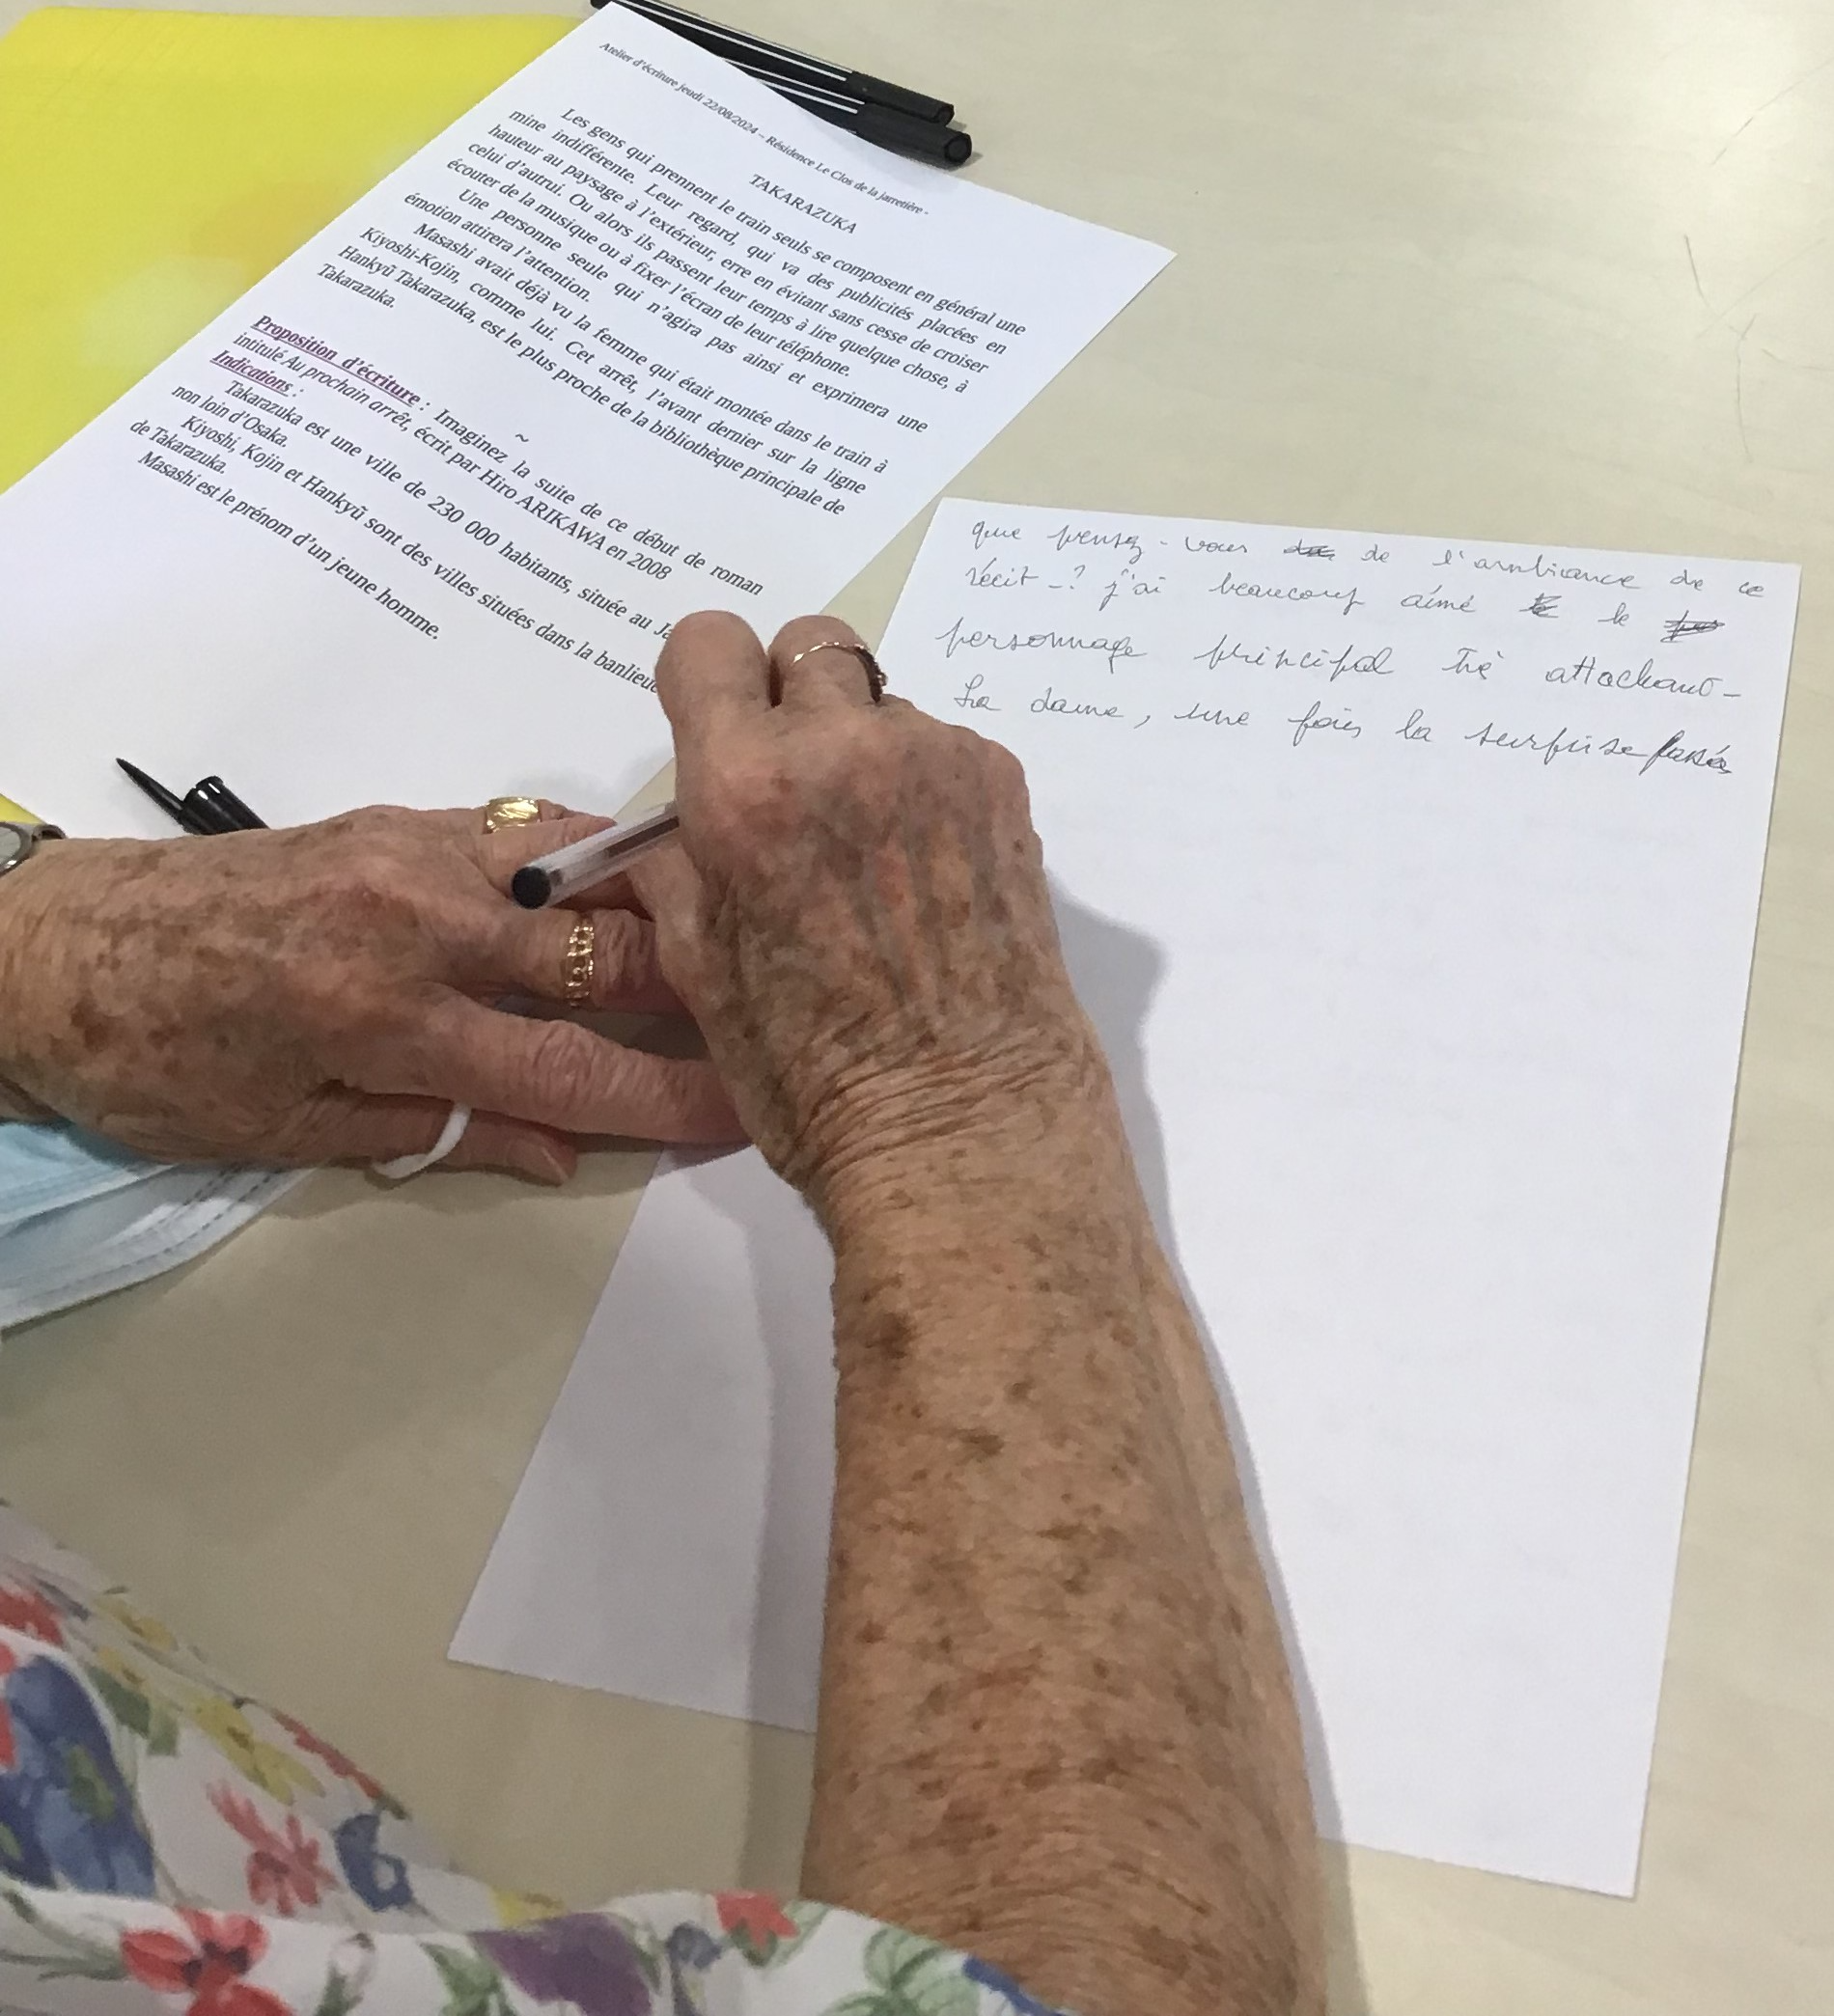 Atelier d'écriture jeudi 22/08/2024 – Résidence Le Clos de la jarretière -
TAKARAZUKA
Les gens qui prennent le train seuls se composent en général une
mine indifférente. Leur regard, qui va des publicités placées en
hauteur au paysage à l'extérieur, erre en évitant sans cesse de croiser
celui d'autrui. Ou alors ils passent leur temps à lire quelque chose, à
écouter de la musique ou à fixer l'écran de leur téléphone.
Une personne seule qui n'agira pas ainsi et exprimera une
émotion attirera l'attention.
Masashi avait déjà vu la femme qui était montée dans le train à
Kiyoshi-Kojin, comme lui. Cet arrêt, l'avant dernier sur la ligne
Hankyū Takarazuka, est le plus proche de la bibliothèque principale de
Takarazuka.
~
Proposition d'écriture : Imaginez la suite de ce début de roman
intitulé Au prochain arrêt, écrit par Hiro ARIKAWA en 2008
Indications :
Takarazuka est une ville de 230 000 habitants, située au Ja
non loin d'Osaka.
Kiyoshi, Kojin et Hankyū sont des villes situées dans la banlieue
de Takarazuka.
Masashi est le prénom d'un jeune homme.
que pensez-vous de l'ambiance de ce
récit-? j'ai beaucoup aimé le
personnage principal trè attachant-
La dame, une fois la surprise